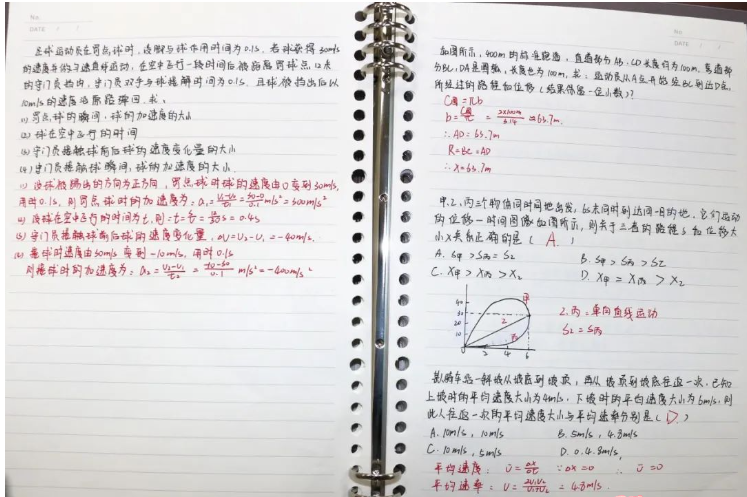 No.
DATE
足球运动员在罚点球时,设脚与球作用时间为0.1s,若球获得30m/s
的速度并做匀速直线运动,在空中飞行一段时间后被距离罚球点12米
的守门员挡出,守门员双手与球接触时间为0.1s,且球被挡出后以
10m/s的速度沿原路弹回,求:
(1) 罚点球的瞬间,球的加速度的大小
(2) 球在空中飞行的时间
(3) 守门员接触球前后球的速度变化量的大小
(4) 守门员接触球瞬间,球的加速度的大小
(1) 设球被踢出的方向为正方向,罚点球时球的速度由0变到30m/s,
用时0.1s,则罚点球时的加速度为:a₁=
(2) 设球在空中飞行的时间为t,则:t=
(3) 守门员接触球前后球的速度变化量,ΔV=V₂-V₁=-40m/s.
(4) 接球时速度由30m/s变到-10m/s,用时0.1s
则接球时的加速度为:a₂= m/s²=-400m/s²
No.
DATE
如图所示,400m的标准跑道,直道部分AB、CD长度均为100m,弯道部
分BC,DA是圆弧,长度也为100m,求:运动员从A点开始经BC到达D点,
所经过的路程和位移(结果保留一位小数)?
∴AD=63.7m
R=BC=AD
∴x=63.7m
甲、乙、丙三个物体同时同地出发,
的位移一时间图像如图所示,则关于三者的路程s和位移大
小x关系正确的是( A )
A. S甲>S丙=S乙
B. S甲>S丙>S乙
C. X甲>X丙>X乙
D. X甲=X丙>X乙
40
30
20
10
甲
乙
丙
2 4 6
乙、丙:单向直线运动
S乙=S丙
某人骑车沿一斜坡从坡底到坡顶,再从坡顶到坡底往返一次,已知
上坡时的平均速度大小为4m/s,下坡时的平均速度大小为6m/s,则
此人往返一次的平均速度大小与平均速率分别是( D )
A. 10m/s,10m/s
B. 5m/s,4.8m/s
C. 10m/s,5m/s
D. 0.4.8m/s,
平均速度:
平均速率:V= =4.8m/s.